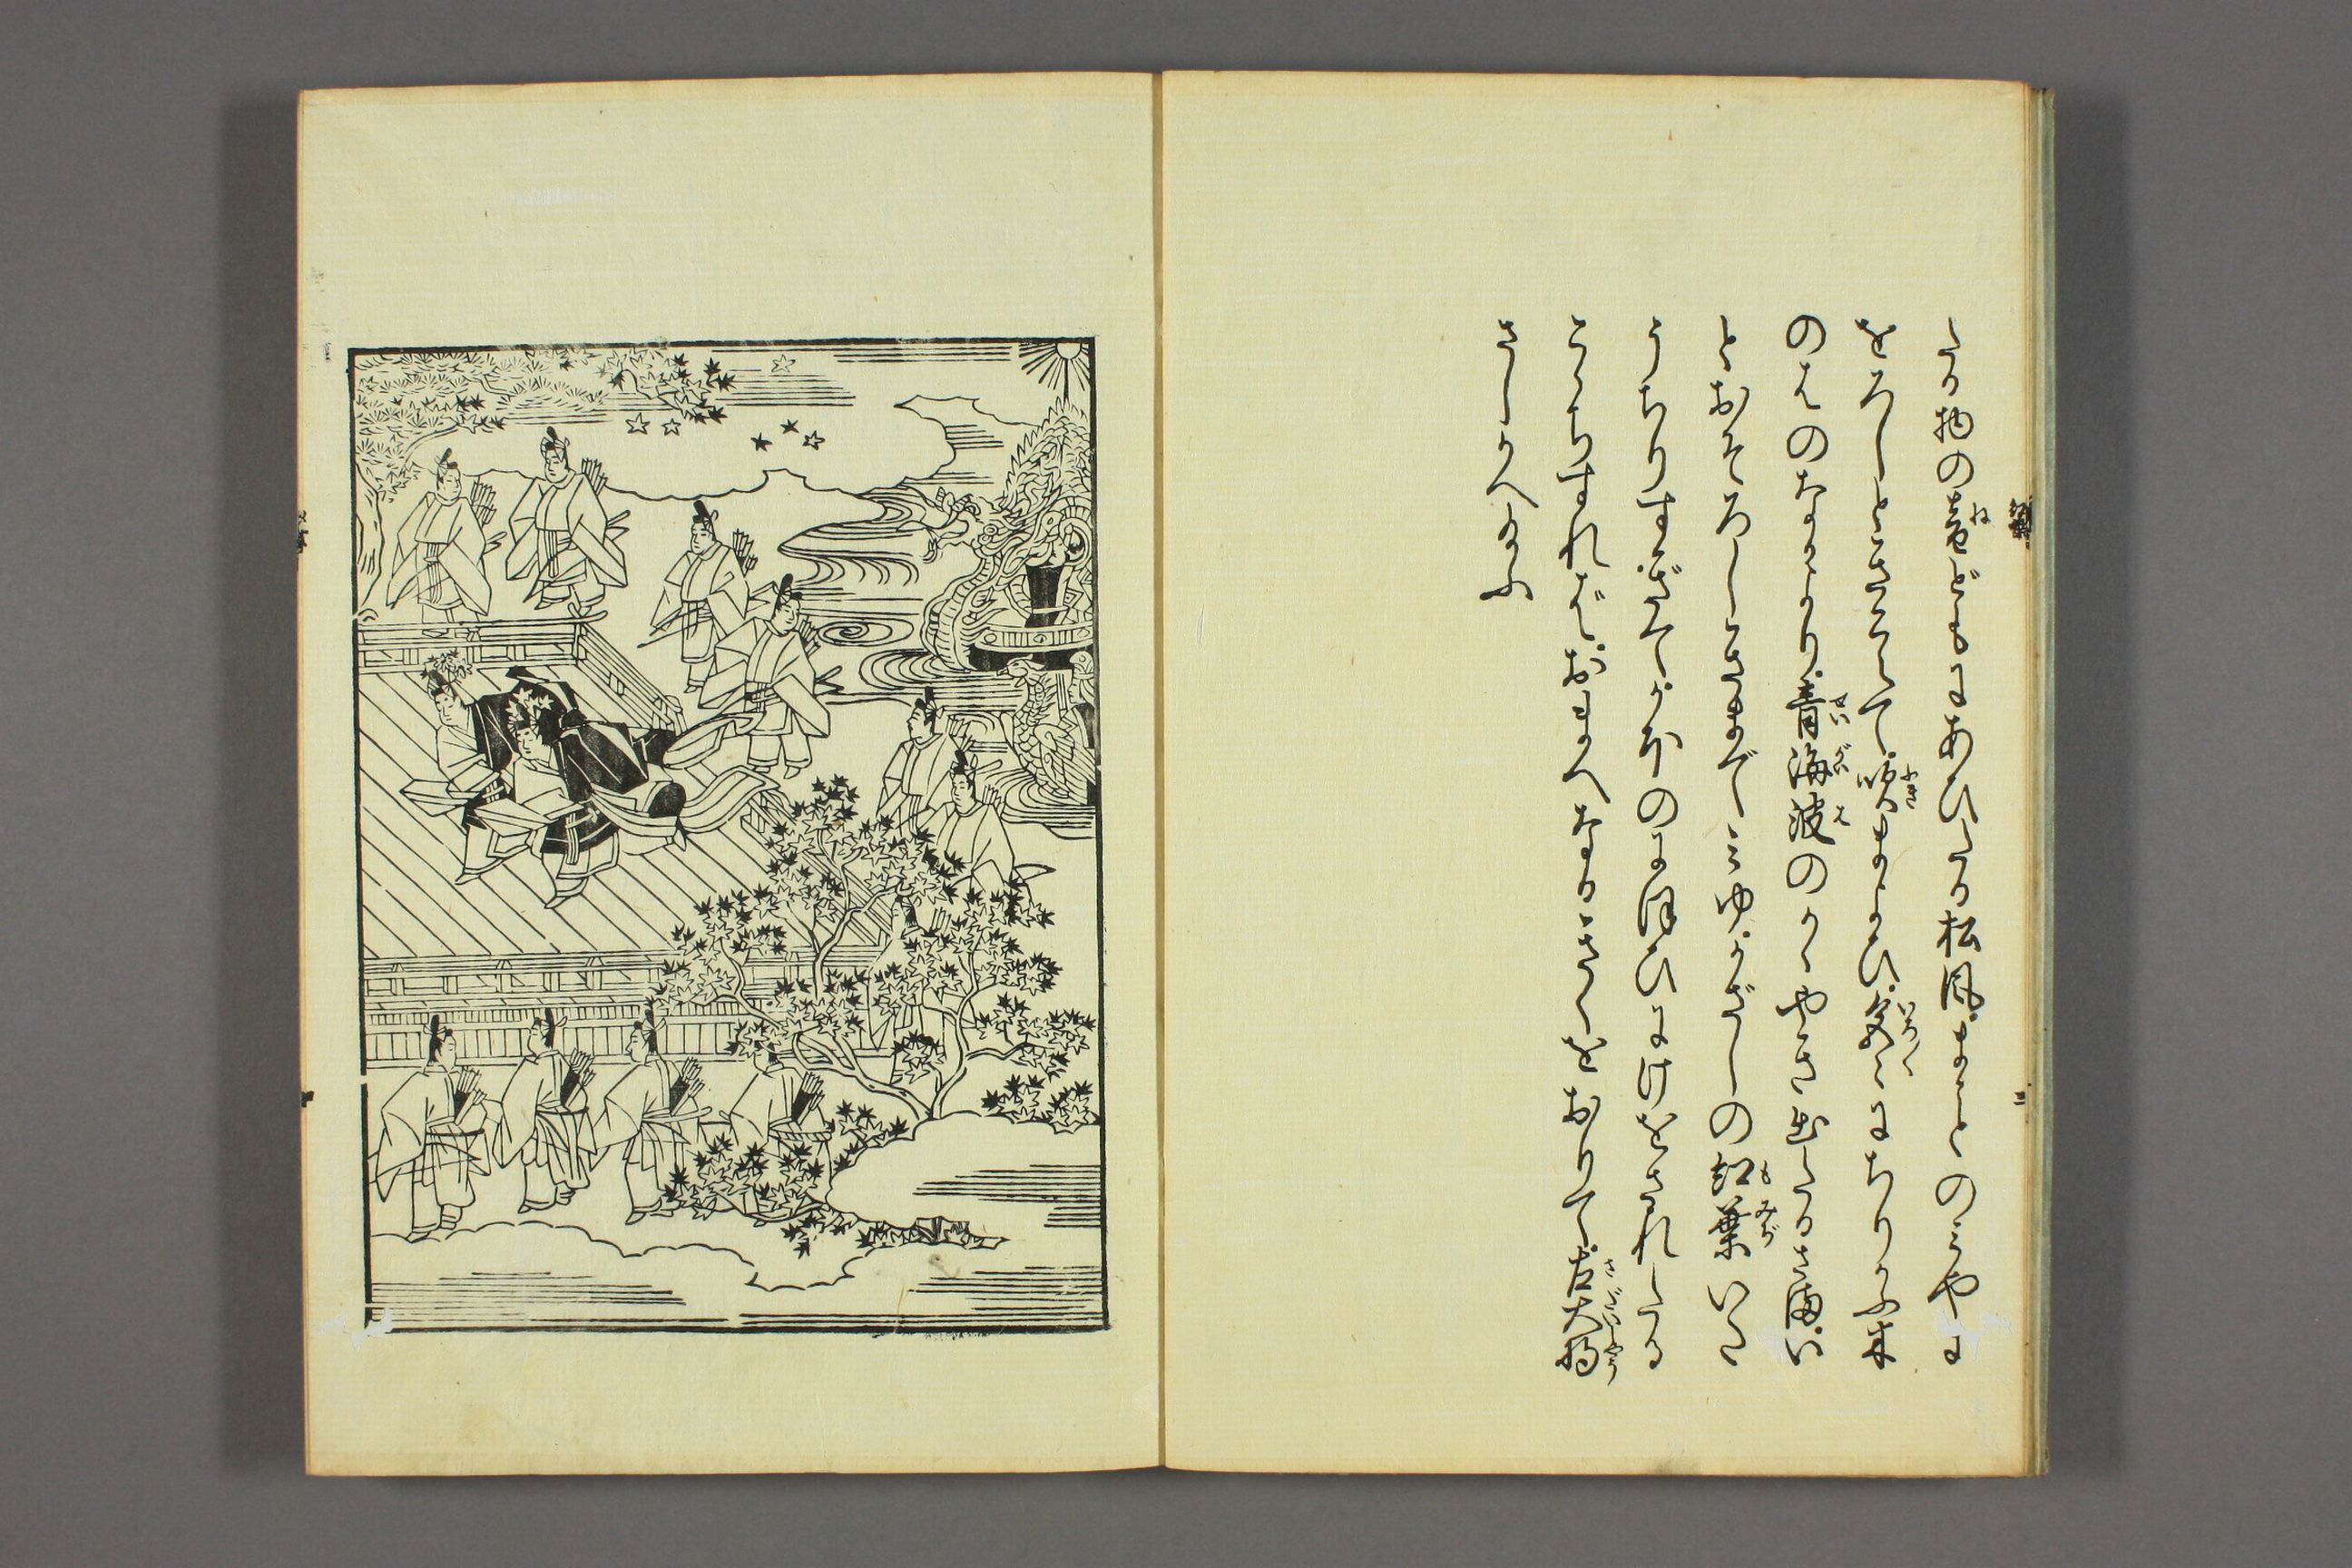 たる物の音どもにあひたる松風まことのみやま
をろしときこえて吹まよひ色〳〵にちりかふ木
のはのなかより青海波のかゝやき出たるさまい
とおそろしきまでみゆかざしの紅葉いたく
うちりすぎてかほのにほひにけをされたる
こゝちすればおまへなるきくをおりて左大将
さしかへ給ふ